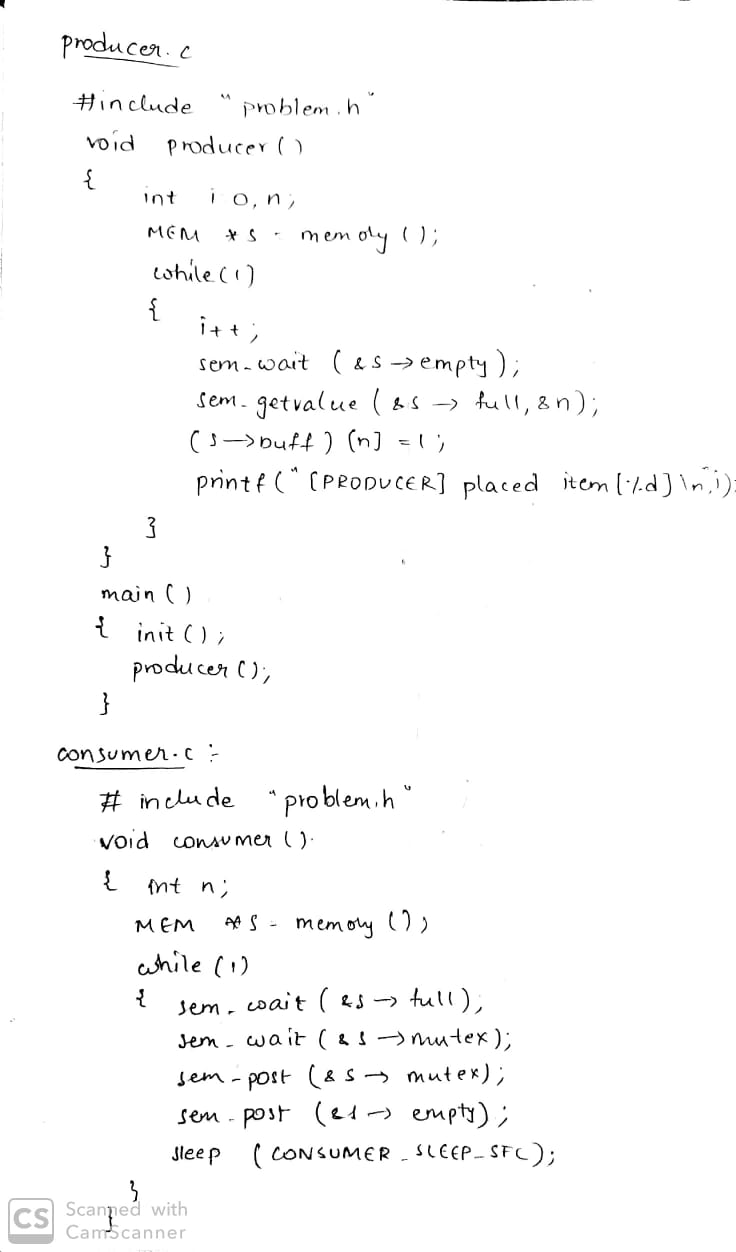 producer.c
#include "problem.h"
void producer()
{
int i 0, n;
MEM *s - memory();
while(1)
{
i++;
sem-wait (&s→empty);
sem-getvalue (&s → full, &n);
(s→buff) [n] = 1;
printf("[PRODUCER] placed item[%d]\n",i);
}
}
main()
{ init();
producer();
}
consumer.c :-
# include "problem.h"
void consumer().
{ int n;
MEM *S - memory();
while(1)
{ sem-wait (&s → full);
sem-wait (&s →mutex);
sem-post (&s → mutex);
sem-post (&s → empty);
sleep (CONSUMER_SLEEP_SFC);
}
}
CS Scanned with
CamScanner